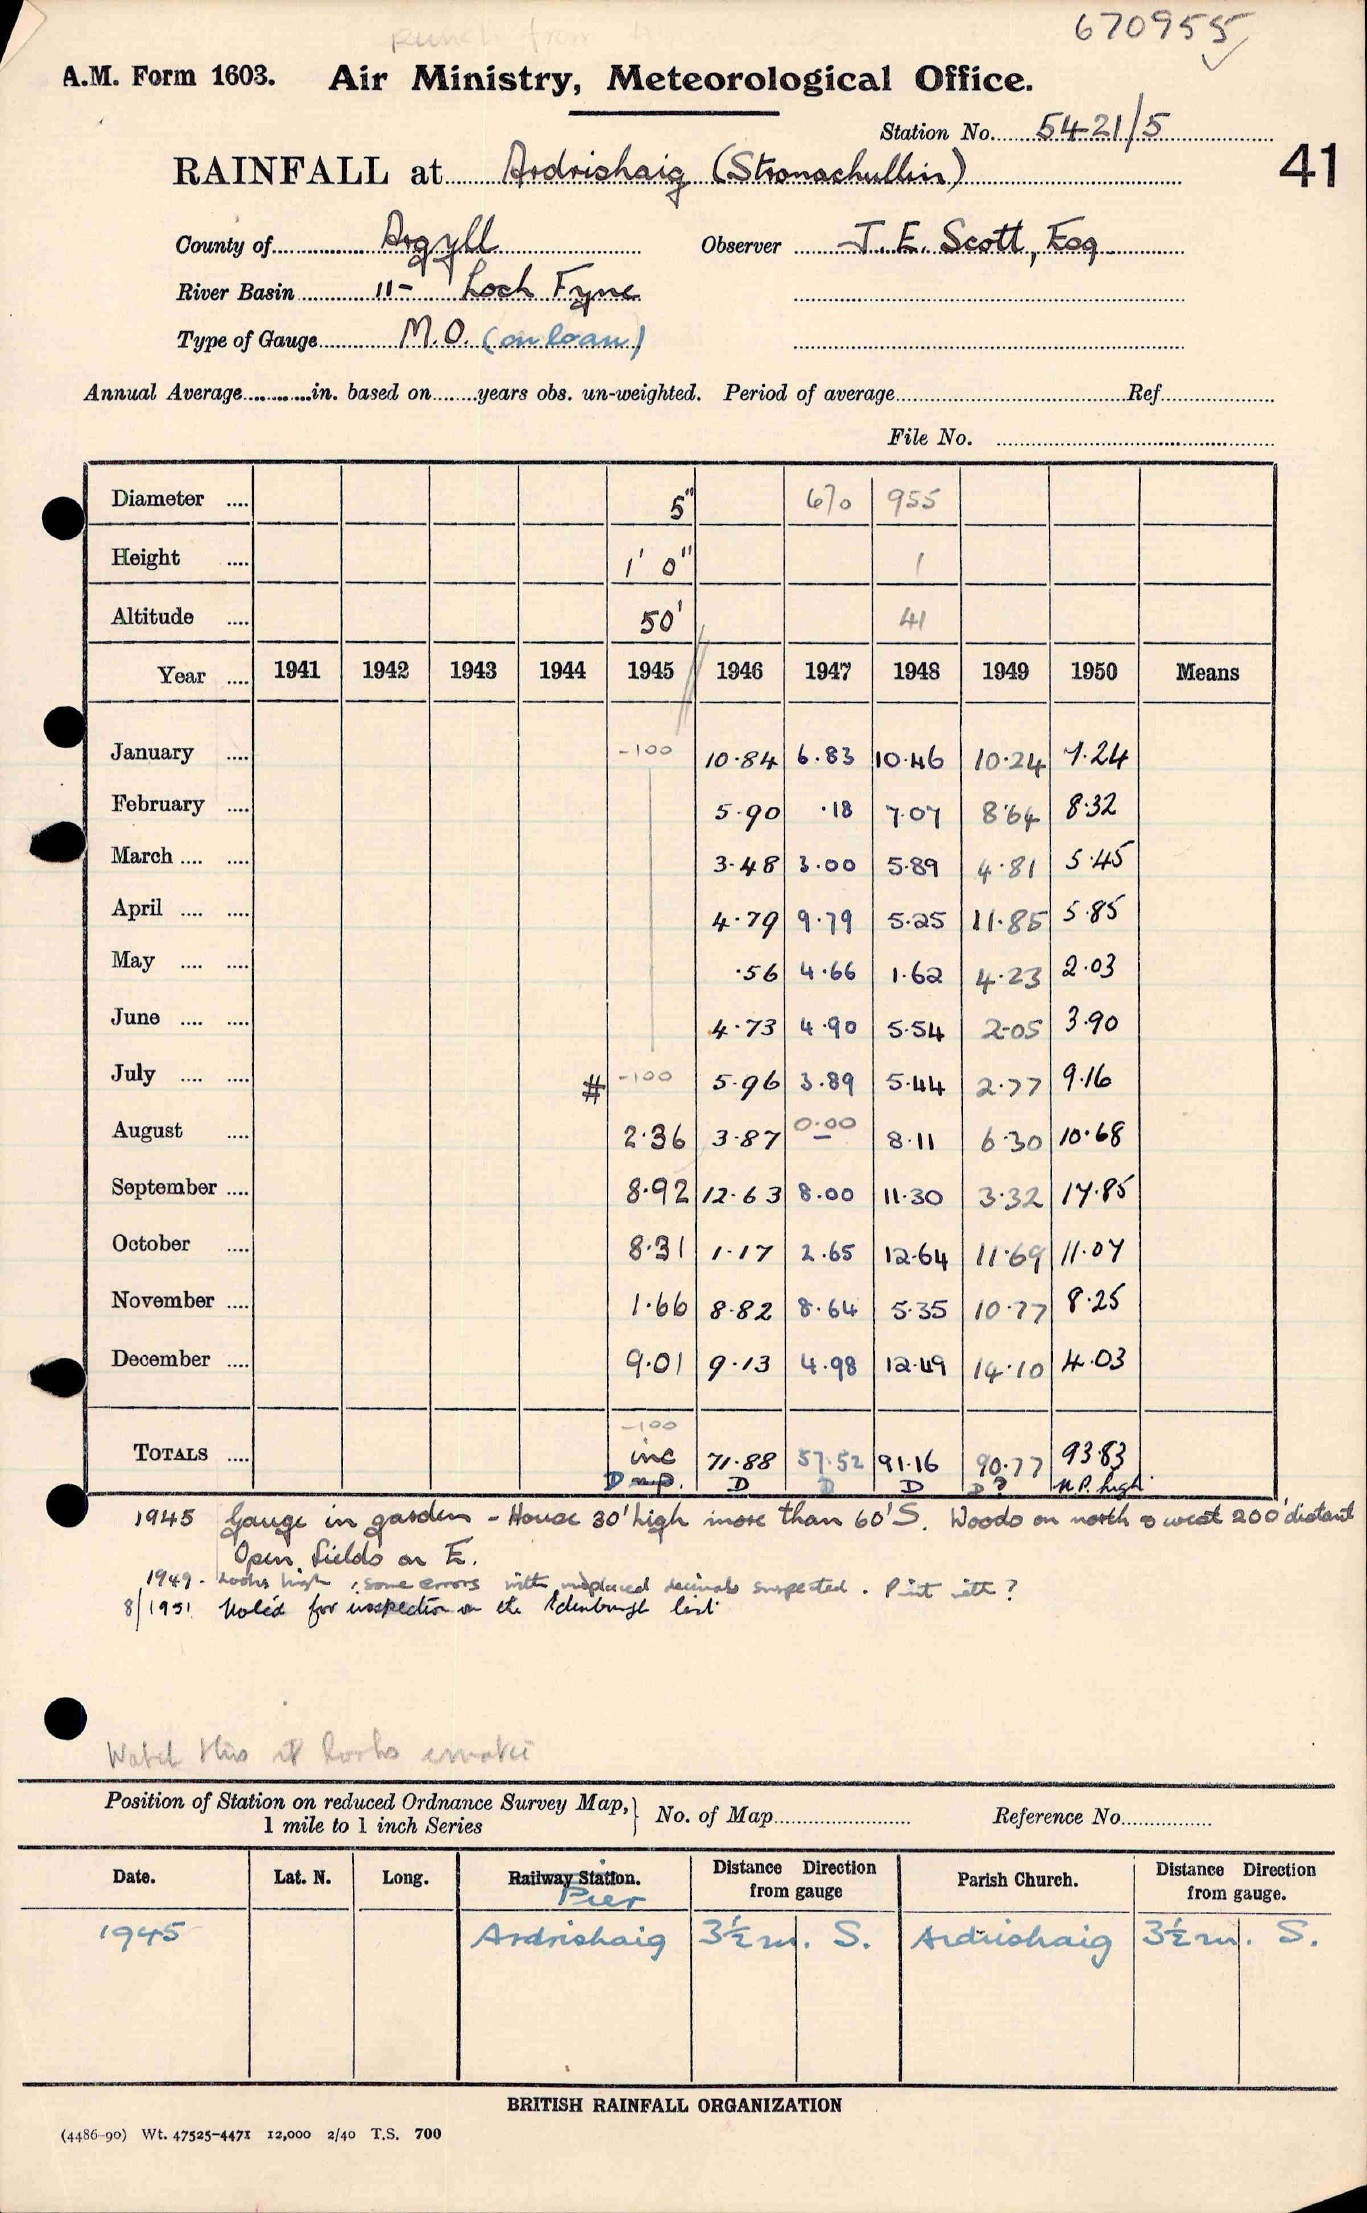 670955
A.M. Form 1603. Air Ministry, Meteorological Office.
Station No. 5421/5
41
RAINFALL at Ardrishaig (Stronachullin)
County of Argyll Observer J. E. Scott, Esq
River Basin 11- Loch Fyne
Type of Gauge M.O. (on loan)
Annual Average in. based on years obs. un-weighted. Period of average Ref
File No.
Diameter 5" 670 955
Height 1' 0" 1
Altitude 50' 41
Year 1941 1942 1943 1944 1945 1946 1947 1948 1949 1950 Means
January -100 10.84 6.83 10.46 10.24 7.24
February 5.90 .18 7.07 8.64 8.32
March 3.48 3.00 5.89 4.81 5.45
April 4.79 9.79 5.25 11.85 5.85
May .56 4.66 1.62 4.23 2.03
June 4.73 4.90 5.54 2.05 3.90
July # -100 5.96 3.89 5.44 2.77 9.16
August 2.36 3.87 0.00 – 8.11 6.30 10.68
September 8.92 12.63 8.00 11.30 3.32 17.85
October 8.31 1.17 2.65 12.64 11.69 11.07
November 1.66 8.82 8.64 5.35 10.77 8.25
December 9.01 9.13 4.98 12.49 14.10 4.03
-100
TOTALS inc 71.88 57.52 91.16 90.77 93.83
D n.p. D D D D ? N.P. high
1945 Gauge in garden - House 30' high more than 60' S. Woods on north & west 200' distant
Open fields on E.
1949 - Looks high, some errors with misplaced decimals suspected. Print with ?
8/1951 Noted for inspection on the Edinburgh list
Watch this it looks erratic
Position of Station on reduced Ordnance Survey Map, 1 mile to 1 inch Series } No. of Map Reference No.
Date. Lat. N. Long. Railway Station. Distance Direction from gauge Parish Church. Distance Direction from gauge.
Pier
1945 Ardrishaig 3½ m. S. Ardrishaig 3½ m. S.
BRITISH RAINFALL ORGANIZATION
(4486-90) Wt. 47525-4471 12,000 2/40 T.S. 700